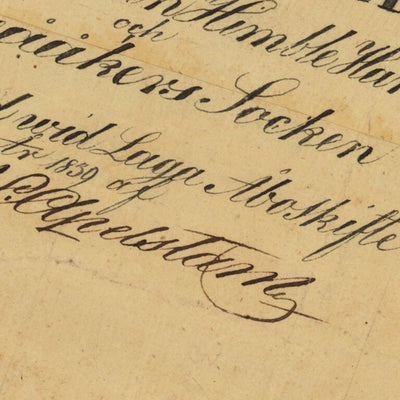 Himble Har
och
åkers Socken
wid Laga Åboskifte
År 1859 af
Apelstam